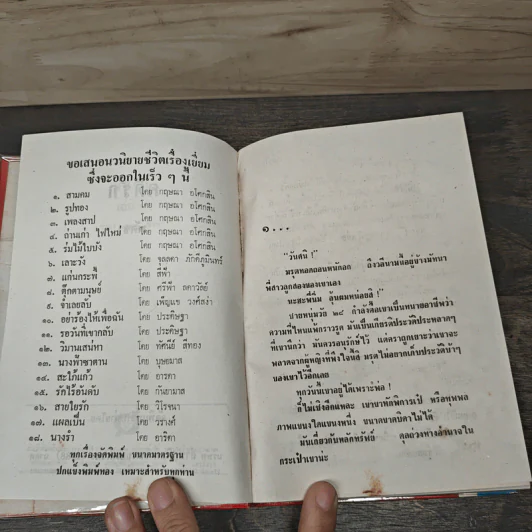 ขอเสนอนวนิยายชีวิตเรื่องเยี่ยม
ซึ่งจะออกในเร็ว ๆ นี้
๑. สามคม โดย กฤษณา อโศกสิน
๒. รูปทอง โดย กฤษณา อโศกสิน
๓. เพลงสาป โดย กฤษณา อโศกสิน
๔. ถ่านเก่า ไฟใหม่ โดย กฤษณา อโศกสิน
๕. ร่มไม้ใบบัง โดย กฤษณา อโศกสิน
๖. เลาะวัง โดย จุลลดา ภักดีภูมินทร์
๗. แก่นกระพี้ โดย สีฟ้า
๘. ตุ๊กตามนุษย์ โดย ศรีฟ้า ลดาวัลย์
๙. จำเลยลับ โดย เพ็ญแข วงศ์สง่า
๑๐. อย่าร้องไห้เพื่อฉัน โดย ประดิษฐา
๑๑. รอวันที่เขากลับ โดย ประดิษฐา
๑๒. วิมานเสน่หา โดย ทัศนีย์ สีทอง
๑๓. นางฟ้าซาตาน โดย บุษยมาส
๑๔. สะใภ้แก้ว โดย อารดา
๑๕. รักไร้อันดับ โดย กันยามาส
๑๖. สายใยรัก โดย วิโรชนา
๑๗. แผลเป็น โดย วรางค์
๑๘. นางรำ โดย อาริตา
ทุกเรื่องจัดพิมพ์ ขนาดมาตรฐาน
ปกแข็งพิมพ์ทอง เหมาะสำหรับทุกท่าน
๑...
"วันศนิ !"
มรุตทอดถอนหนักอก
พี่สาวลูกสองของเขาเอง
ปายหนุ่มวัย ๒๙ กำลังคิดเขาเป็นทนายอาชีพว่า
ความที่ไหนแพ้กราวรูด มันเป็นเกียรติประวัติประหลาดๆ
พลาดจากผู้หญิงที่พึงใจนี่สิ มรุตไม่อยากเก็บประวัติบ้าๆ
ของเขาไว้อีกเลย
ทุกวันนี้เขาอยู่ได้เพราะพ่อ !
มันเกี่ยวกับหลักทรัพย์
กระเป๋าเขาน่ะ